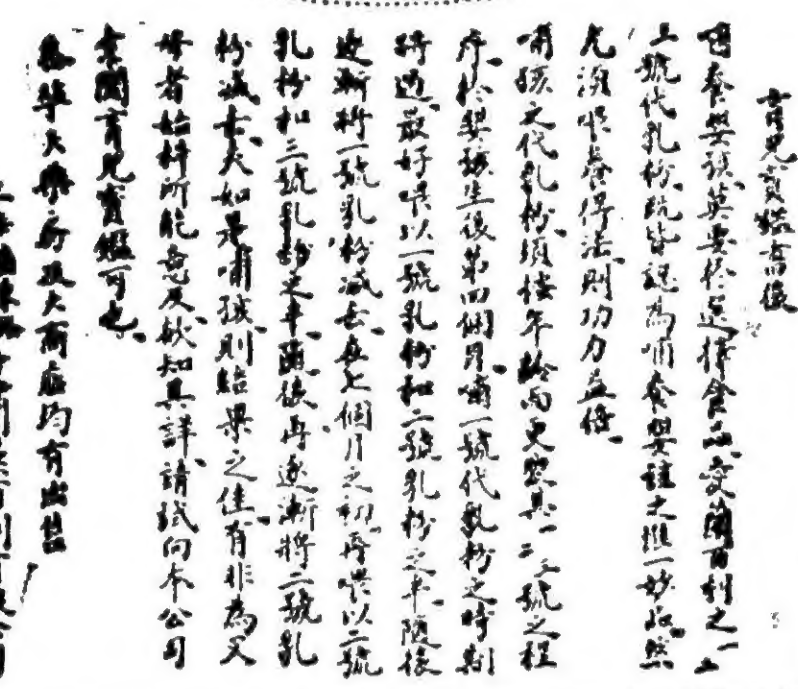 育兒寶鑑書後
哺養嬰孩莫要於選擇食品愛蘭百利之一二
三號代乳粉既皆認為哺養嬰孩之唯一妙品然
尤須喂養得法則功力益倍
哺孩之代乳粉須按年齡而更變其一二三號之程
序於嬰孩生後第四個月哺一號代乳粉之時期
將過最好喂以一號乳粉和二號乳粉之半隨後
逐漸將一號乳粉減去在七個月之初再喂以二號
乳粉和三號乳粉之半隨後再逐漸將二號乳
粉減去夫如是哺孩則結果之佳有非為父
母者始料所能意及欲知其詳請試向本公司
索閱育兒寶鑑可也
各華大藥房及大商店均有出售
上海